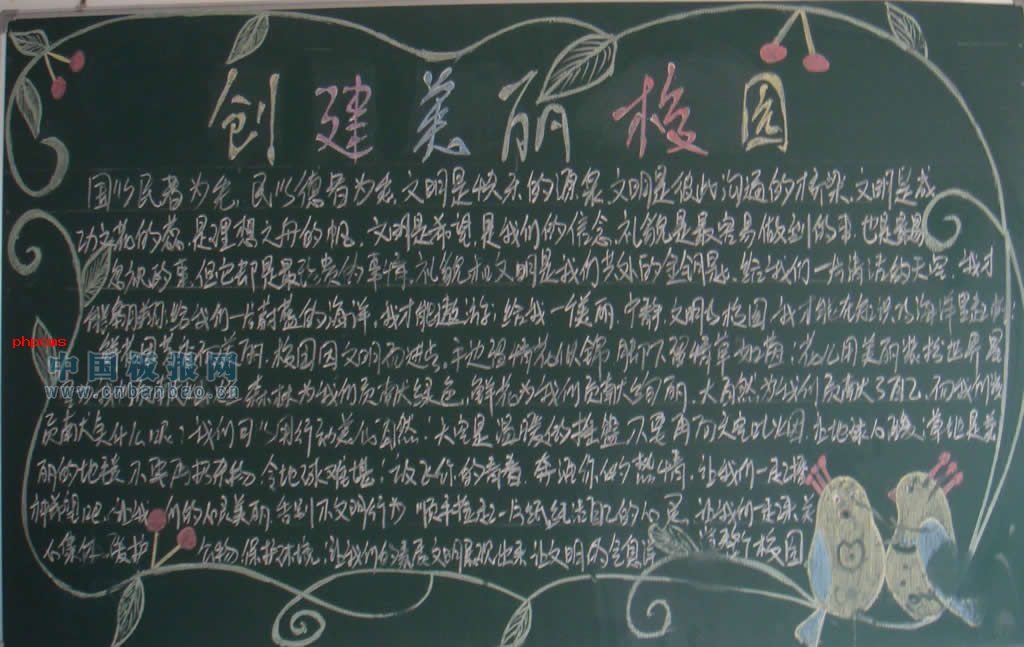 创建美丽校园
国以民者为先，民以德者为先，文明是快乐的源泉，文明是彼此沟通的桥梁，文明是成
功之花的蕊，是理想之舟的帆，文明是希望，是我们的信念，礼貌是最容易做到的事，也是最易
忽视的事，但它却是最珍贵的事情，礼貌和文明是我们共处的金钥匙，给我们一片清洁的天空，我才
能翱翔；给我们一片蔚蓝的海洋，我才能遨游；给我一美丽、宁静、文明的校园，我才能在知识的海洋里
美丽，校园因文明而进步，手边留情花似锦，脚下留情草如茵，花儿用美丽装扮世界
phpcms
中国板报网
www.cnbanbao.cn
森林为我们贡献绿色，鲜花为我们贡献绚丽，大自然为我们贡献了自己，而我们
贡献点什么呢？我们可以用行动美化自然，大空是温暖的摇篮，不要再让，让地球心，草地是美
丽的地毯，不要再扔弃物，令地球难堪；放飞你的青春，奔洒你的热情，让我们一起
让我们的心灵美丽，告别不文明行为，顺手捡起一片纸纯洁自己的心灵，让我们
心集体，爱护公物，保护环境，让我们的文明展现出来，让文明的气息整个校园